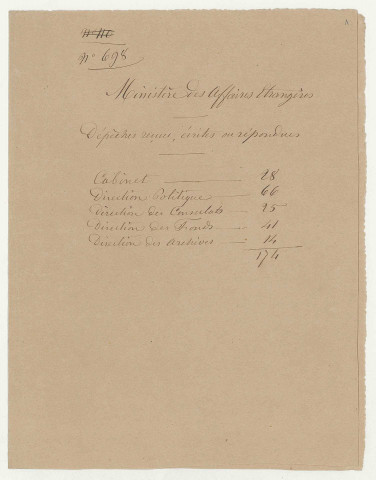 n° 698
Ministère des Affaires Etrangères
Dépêches reçues, écrites ou répondues
Cabinet 28
Direction Politique 66
Direction des Consulats 25
Direction des Fonds 41
Direction des Archives 14
174